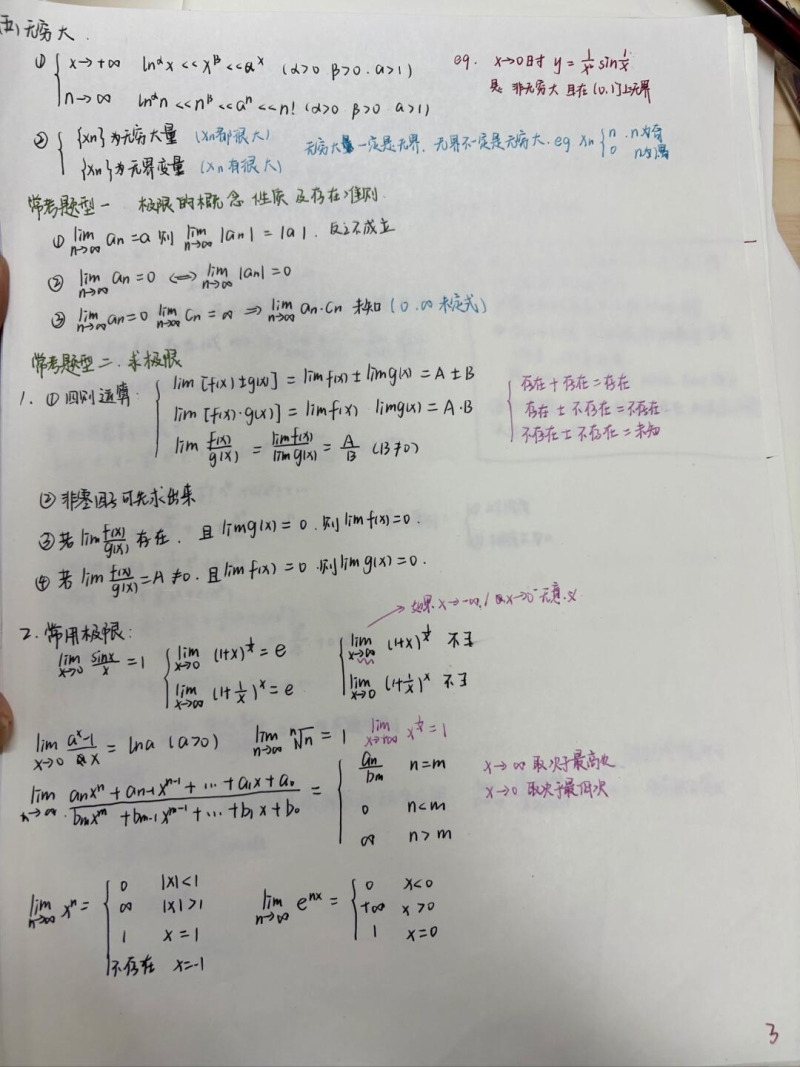 (五) 无穷大.
① { x→+∞ lnᵅx << xᵝ << aˣ (α>0 β>0. a>1)
n→∞ lnᵅn << nᵝ << aⁿ << n! (α>0 β>0 a>1)
eg. x→0时 y = 1/x² sin 1/x
是 非无穷大 且在(0,1]上无界
② { {xn}为无穷大量 (xn都很大)
{xn}为无界变量 (xn有很大)
无穷大量一定是无界, 无界不一定是无穷大. eg xn { n . n为奇
0 n为偶
常考题型一 极限的概念 性质 及存在准则.
① lim n→∞ an = a 则 lim n→∞ |an| = |a| . 反之不成立
② lim n→∞ an = 0 <=> lim n→∞ |an| = 0
③ lim n→∞ an = 0 lim n→∞ Cn = ∞ => lim n→∞ an·Cn 未知 (0.∞ 未定式)
常考题型二. 求极限
1. ① 四则运算: { lim [f(x)±g(x)] = lim f(x) ± lim g(x) = A ± B
lim [f(x)·g(x)] = lim f(x) lim g(x) = A·B
lim f(x)/g(x) = lim f(x)/lim g(x) = A/B (B≠0)
{ 存在+存在=存在
存在±不存在=不存在
不存在±不存在=未知
② 非零因子可先求出来
③ 若 lim f(x)/g(x) 存在, 且 lim g(x) = 0. 则 lim f(x) = 0.
④ 若 lim f(x)/g(x) = A ≠ 0. 且 lim f(x) = 0 .则 lim g(x) = 0.
→ 如果 x→-∞, x→0⁻ 无意义
2. 常用极限:
lim x→0 sinx/x = 1 { lim x→0 (1+x)^(1/x) = e
lim x→∞ (1+1/x)^x = e
{ lim x→∞ (1+x)^(1/x) 不∃
lim x→0 (1+1/x)^x 不∃
lim x→0 (aˣ-1)/x = lna (a>0) lim n→∞ ⁿ√n = 1 lim x→+∞ x^(1/x) = 1
lim n→∞ (anxⁿ + an-1xⁿ⁻¹ + ... + a1x + a0)/(bmxᵐ + bm-1xᵐ⁻¹ + ... + b1x + b0) = { an/bm n=m
0 n<m
∞ n>m
x→∞ 取决于最高次
x→0 取决于最低次
lim n→∞ xⁿ = { 0 |x|<1
∞ |x|>1
1 x=1
不存在 x=-1
lim n→∞ eⁿˣ = { 0 x<0
+∞ x>0
1 x=0
3